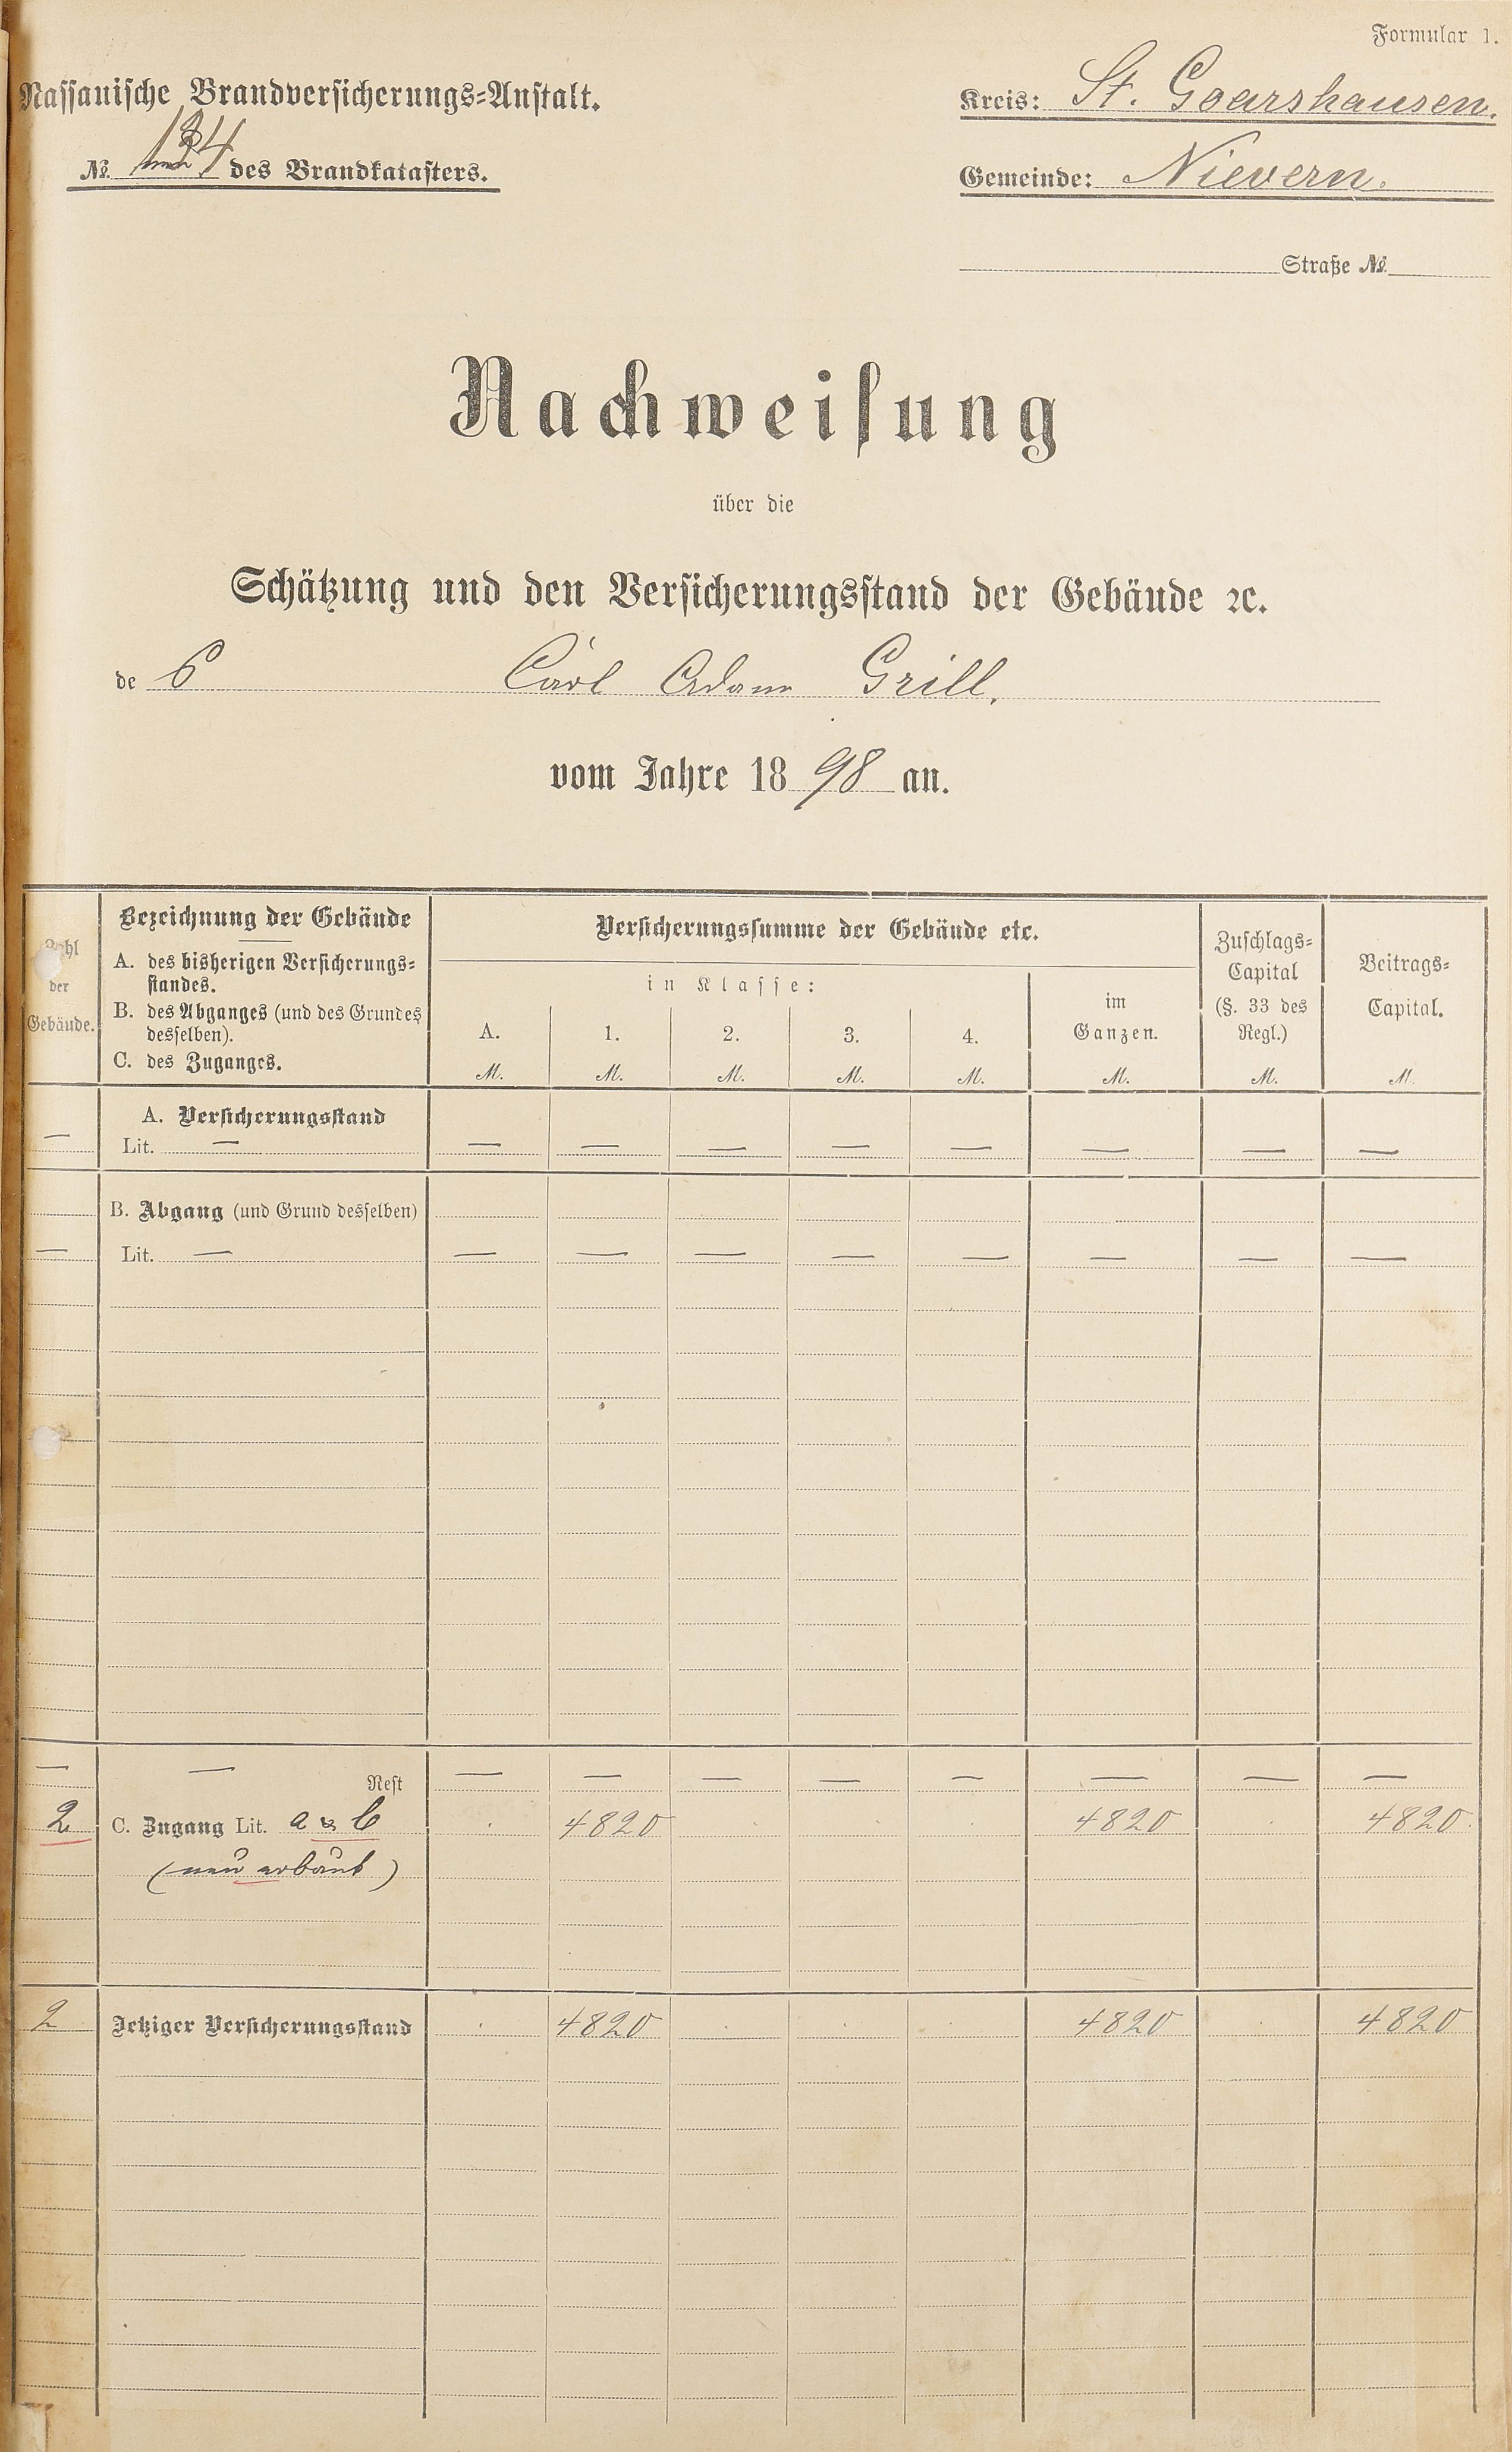 Formular 1.
Nassauische Brandversicherungs-Anstalt.
Kreis: St. Goarshausen.
№ 134 des Brandkatasters.
Gemeinde: Nievern.
Straße №
Nachweisung
über die
Schätzung und den Versicherungsstand der Gebäude ꝛc.
des Carl Adam Grill,
vom Jahre 1898 an.
Zahl der Gebäude.
Bezeichnung der Gebäude
A. des bisherigen Versicherungs-
standes.
B. des Abganges (und des Grundes
desselben).
C. des Zuganges.
Versicherungssumme der Gebäude etc.
in Klasse:
A. 1. 2. 3. 4.
im
Ganzen.
Zuschlags-
Capital
(§. 33 des
Regl.)
Beitrags-
Capital.
M. M. M. M. M. M. M. M.
A. Versicherungsstand
— Lit. — — — — — — — — —
B. Abgang (und Grund desselben)
— Lit. — — — — — — — — —
— — Rest — — — — — — — —
2 C. Zugang Lit. a & b . 4820 . . . 4820 . 4820.
(neu erbaut)
2 Jetziger Versicherungsstand . 4820 . . . 4820 . 4820